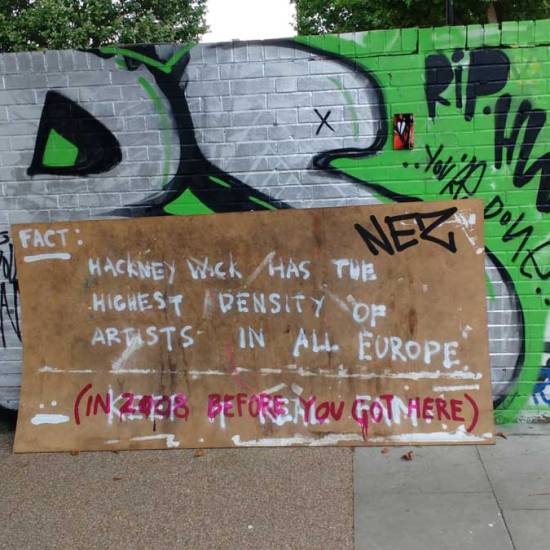 RIP. HW
..YOU'RE DONE..
NEZ
FACT:
HACKNEY WICK HAS THE
HIGHEST DENSITY OF
ARTISTS IN ALL EUROPE
(IN 2008 BEFORE YOU GOT HERE)